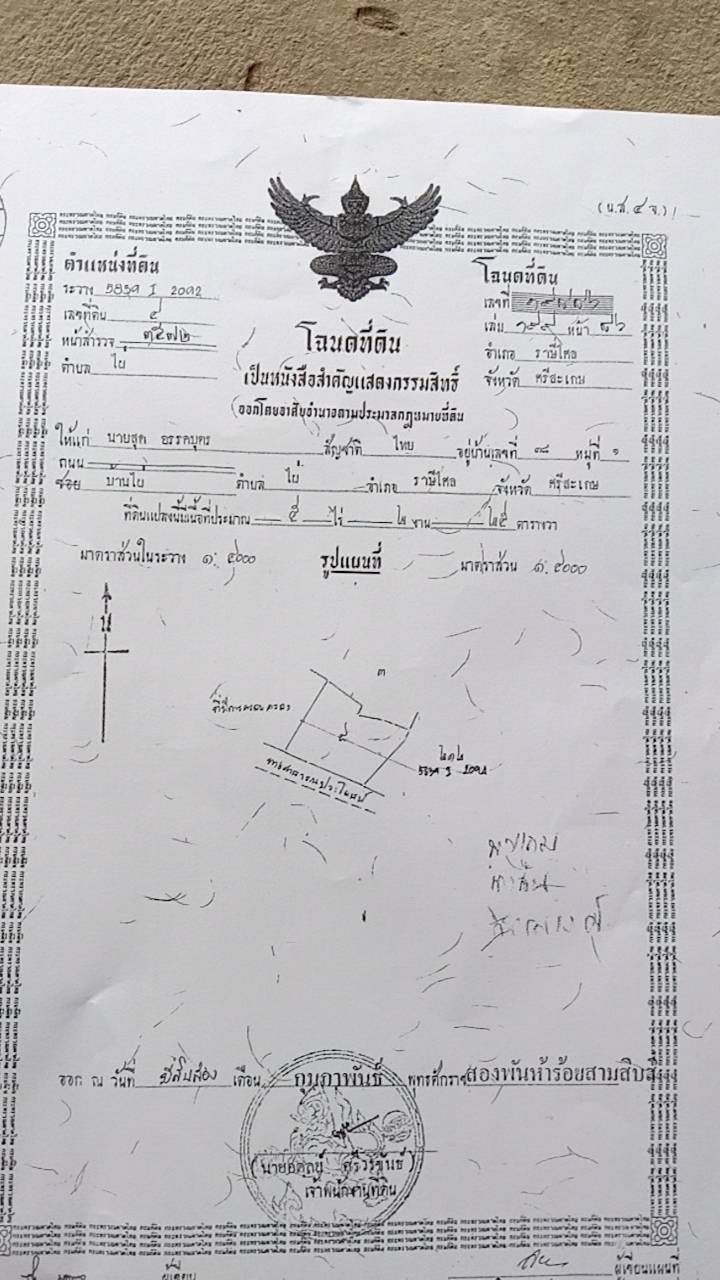 (น.ส.๔ จ.)
ตำแหน่งที่ดิน
ระวาง 5839 I 2092
เลขที่ดิน ๕
หน้าสำรวจ
ตำบล ไผ่
โฉนดที่ดิน
เลขที่
เล่ม หน้า ๘๖
อำเภอ ราษีไศล
จังหวัด ศรีสะเกษ
โฉนดที่ดิน
เป็นหนังสือสำคัญแสดงกรรมสิทธิ์
(ออกโดยอาศัยอำนาจตามประมวลกฎหมายที่ดิน
ให้แก่ นายสุด อรรคบุตร สัญชาติ ไทย อยู่บ้านเลขที่ ๓๘ หมู่ที่ ๑
ถนน
ซอย บ้านไผ่ ตำบล ไผ่ อำเภอ ราษีไศล จังหวัด ศรีสะเกษ
ที่ดินแปลงนี้มีเนื้อที่ประมาณ ๕ ไร่ ๒ งาน ๒๕ ตารางวา
มาตราส่วนในระวาง ๑:๔๐๐๐ รูปแผนที่ มาตราส่วน ๑:๔๐๐๐
น
๓
ที่มีการครอบครอง
๕
5839 I 2092
ทางสาธารณประโยชน์
ออก ณ วันที่ ยี่สิบสอง เดือน กุมภาพันธ์ พุทธศักราช สองพันห้าร้อยสามสิบ
ศรีวรขันธ์)
เจ้าพนักงานที่ดิน
ผู้เขียน
ผู้เขียนแผนที่